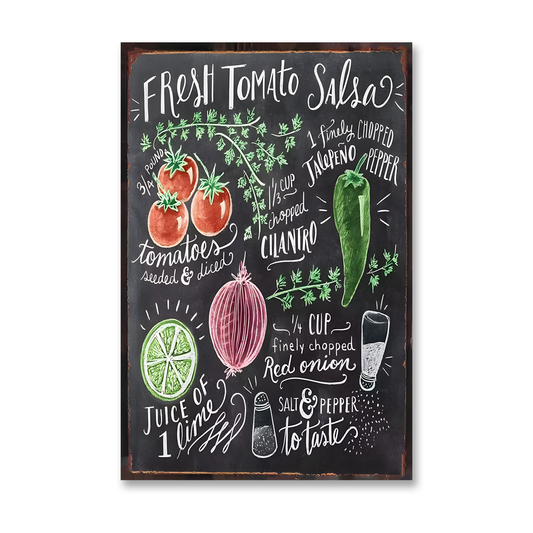 FRESH TOMATO SALSA
3/4 POUND
tomatoes
seeded & diced
1/3 CUP
chopped
CILANTRO
1 finely CHOPPED
JALAPEÑO PEPPER
1/4 CUP
finely chopped
Red onion
JUICE OF
1 lime
SALT & PEPPER
to taste